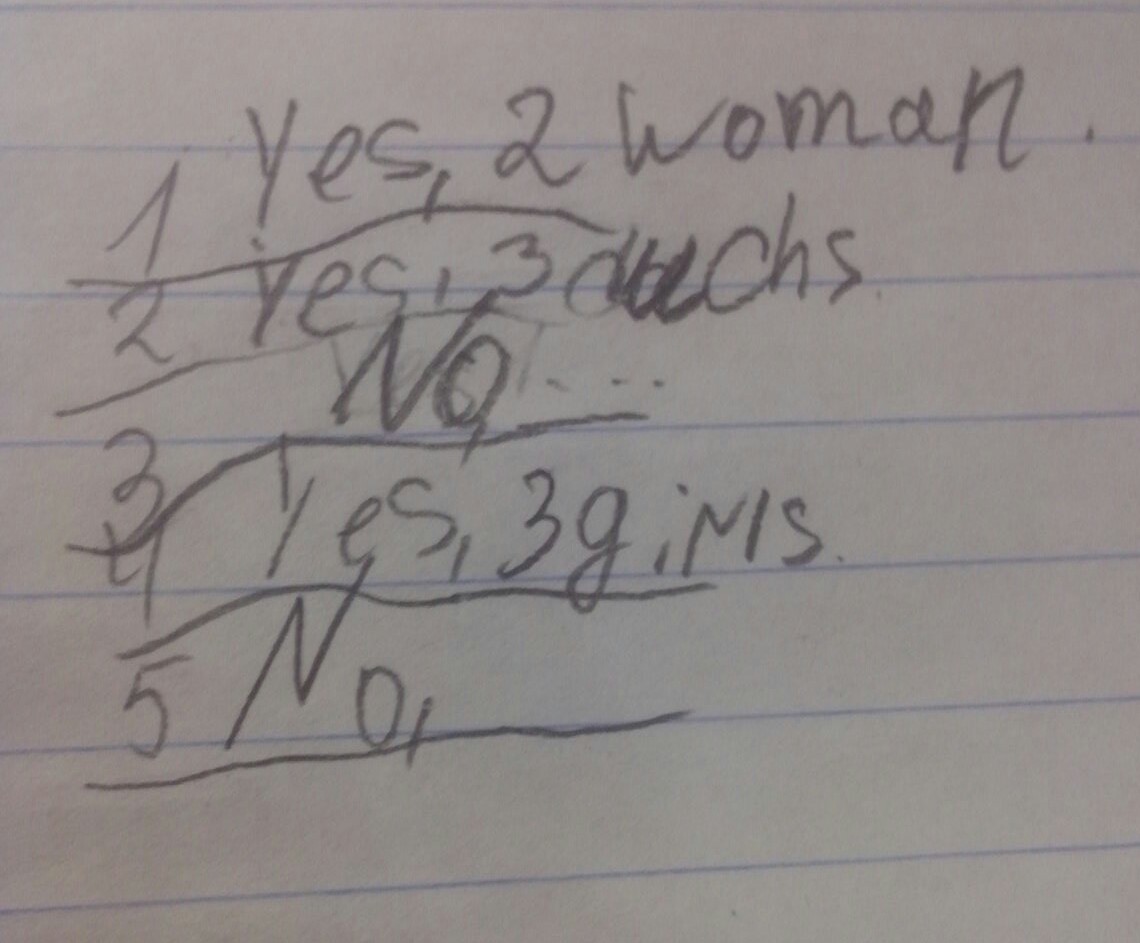 1 Yes, 2 woman.
2 Yes, 3 duchs.
3 No, ...
4 Yes, 3 girls.
5 No,